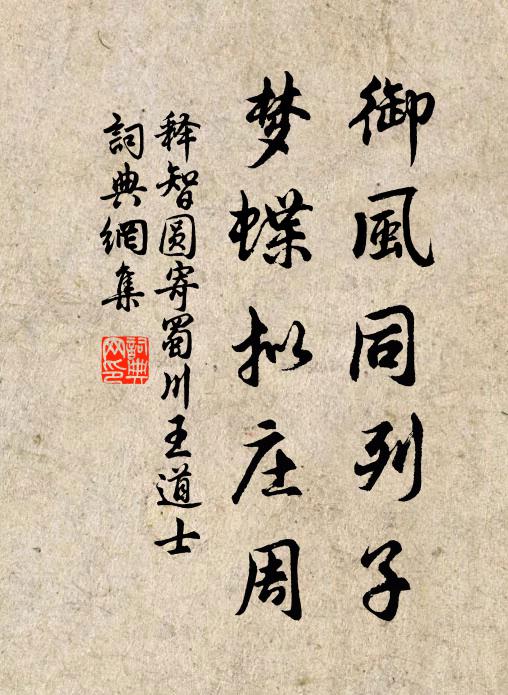 御風同列子
梦蝶拟庄周
释智圆寄蜀川王道士
詞典網集
詞典
网印